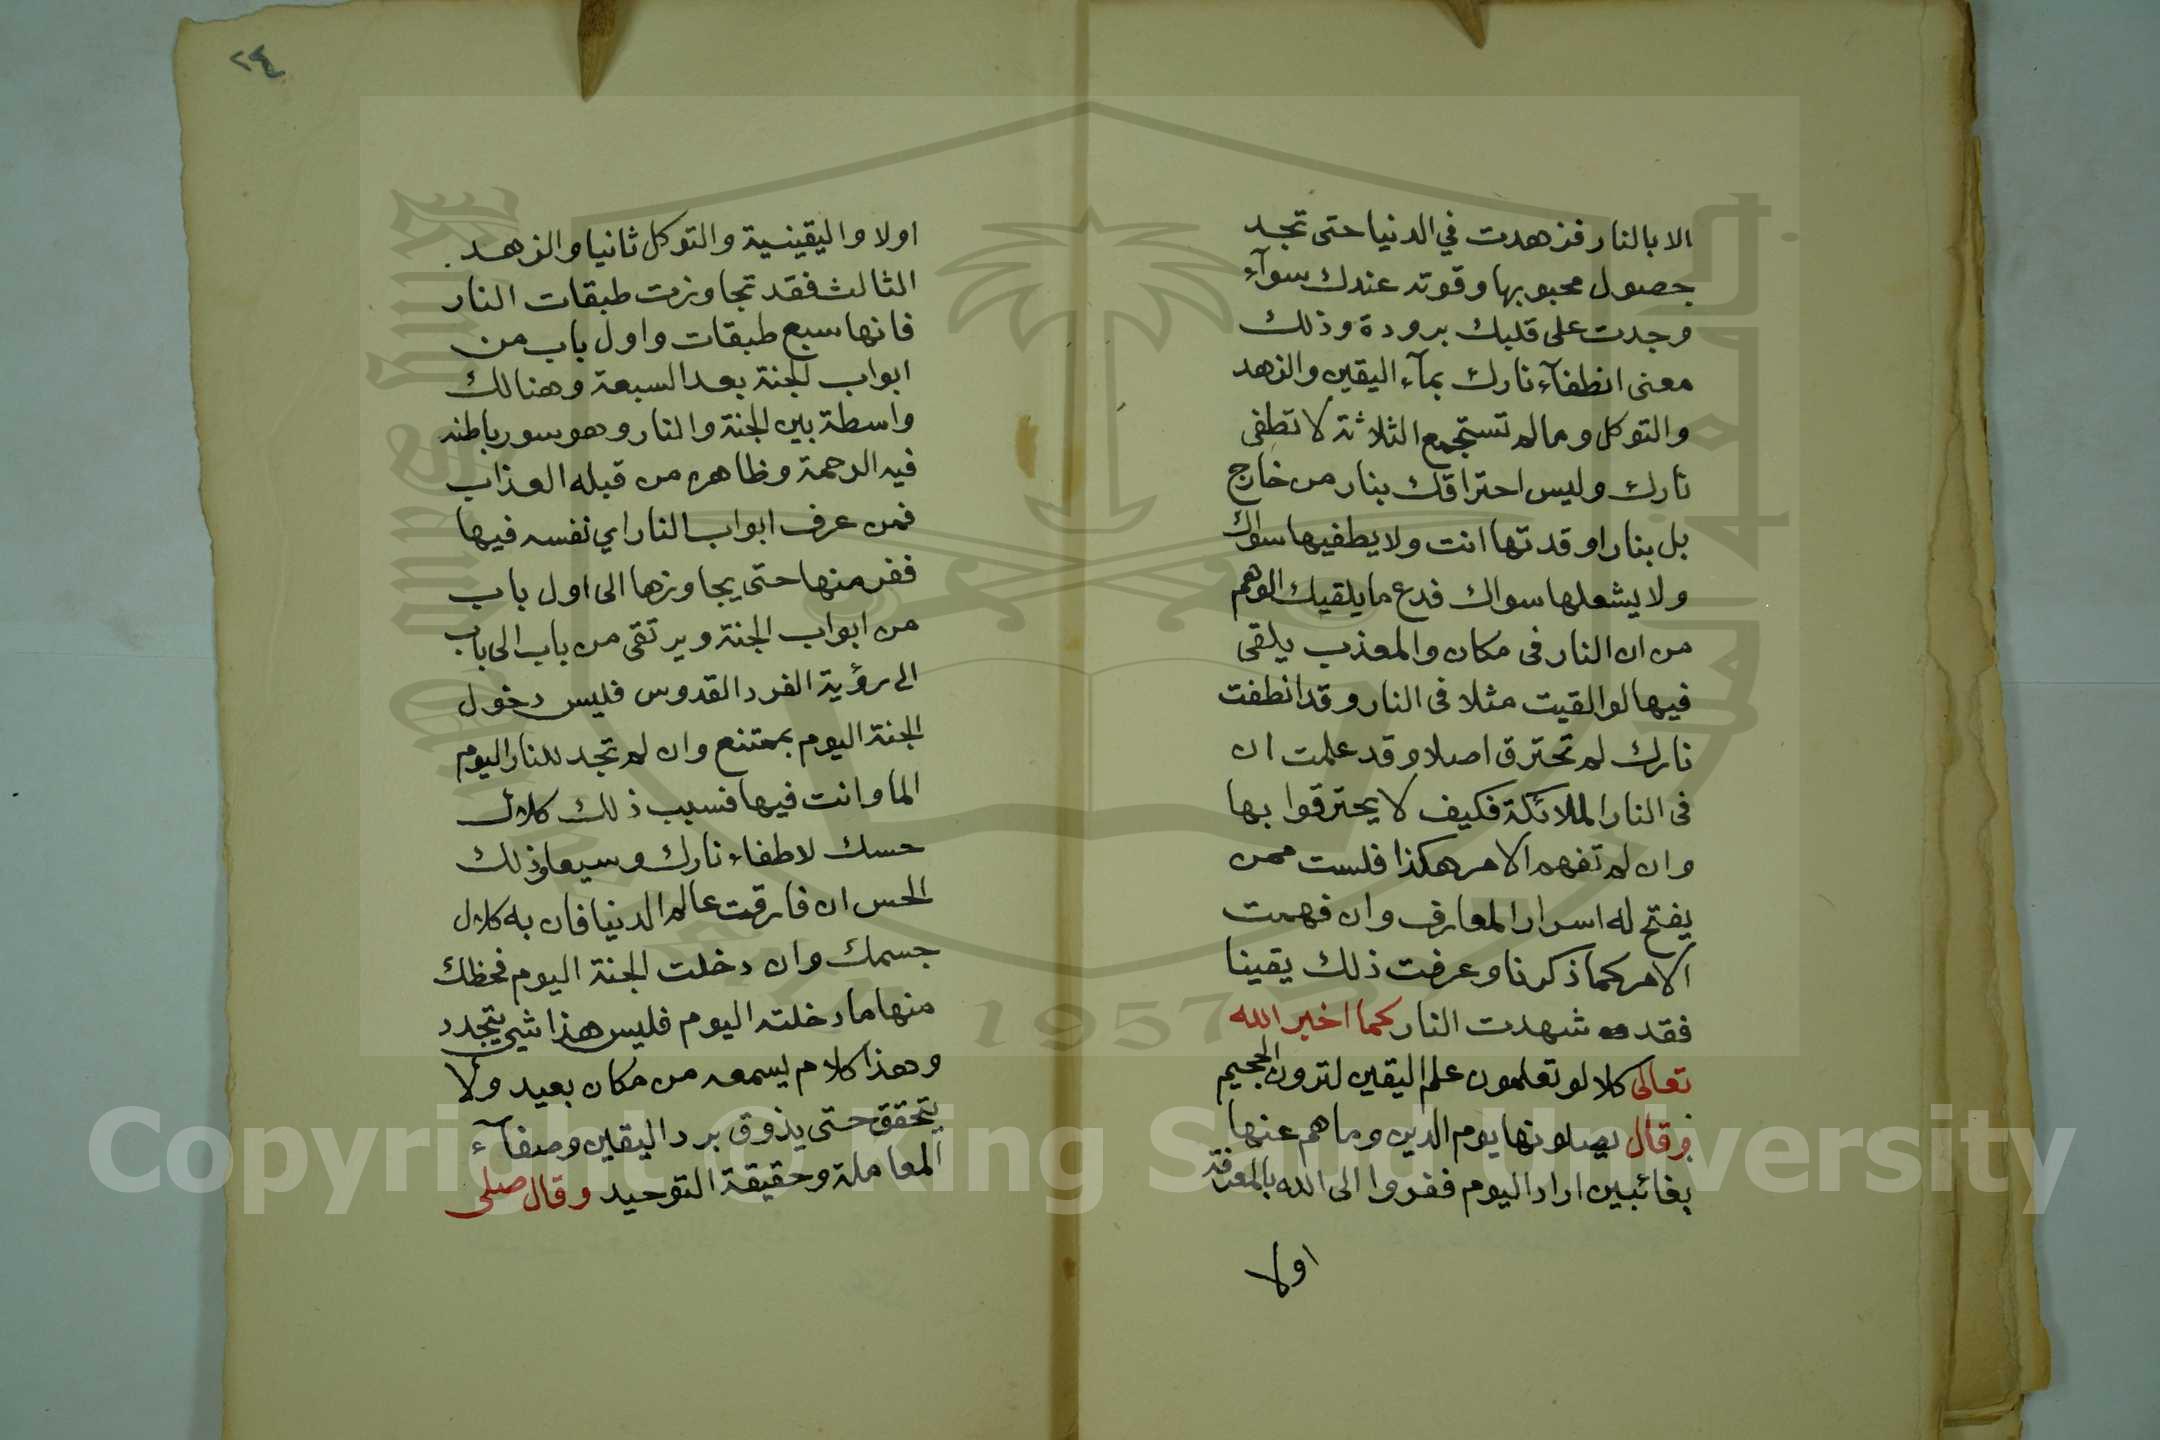 الا بالنار فزهدت في الدنيا حتى تجد
حصول محبوبها وقوته عندك سوآء
وجدت على قلبك برودة وذلك
معنى انطفآء نارك بمآء اليقين والزهد
والتوكل وما لم تستجمع الثلاثة لا تطفى
نارك وليس احتراقك بنار من خارج
بل بنار اوقدتها انت ولا يطفيها سواك
ولا يشعلها سواك فدع ما يلقيك الوهم
من ان النار فى مكان والمعذب يلقى
فيها لو القيت مثلا فى النار وقد انطفت
نارك لم تحترق اصلا وقد علمت ان
فى النار الملائكة فكيف لا يحترقوا بها
وان لم تفهم الامر هكذا فلست ممن
يفتح له اسرار المعارف وان فهمت
الامر كما ذكرنا وعرفت ذلك يقينا
فقد شهدت النار كما اخبر الله
تعالى كلا لو تعلمون علم اليقين لترون الجحيم
وقال يصلونها يوم الدين وما هم عنها
بغائبين اراد اليوم ففروا الى الله بالمعرفة
اولا
٢٤
اولا واليقينية والتوكل ثانيا والزهد
الثالث فقد تجاوزت طبقات النار
فانها سبع طبقات واول باب من
ابواب الجنة بعد السبعة وهنالك
واسطة بين الجنة والنار وهو سور باطنه
فيه الرحمة وظاهره من قبله العذاب
فمن عرف ابواب النار اي نفسه فيها
ففر منها حتى يجاوزها الى اول باب
من ابواب الجنة ويرتقى من باب الى باب
الى رؤية الفرد القدوس فليس دخول
الجنة اليوم بممتنع وان لم تجد للنار اليوم
الما وانت فيها فسبب ذلك كلال
حسك لاطفاء نارك وسيعاوذلك
الحس ان فارقت عالم الدنيا فان به كلال
جسمك وان دخلت الجنة اليوم فحظك
منها ما دخلته اليوم فليس هذا شيئ يتجدد
وهذا كلام يسمعه من مكان بعيد ولا
يتحقق حتى يذوق برد اليقين وصفآء
المعاملة وحقيقة التوحيد وقال صلى
1957
Copyright © King Saud University